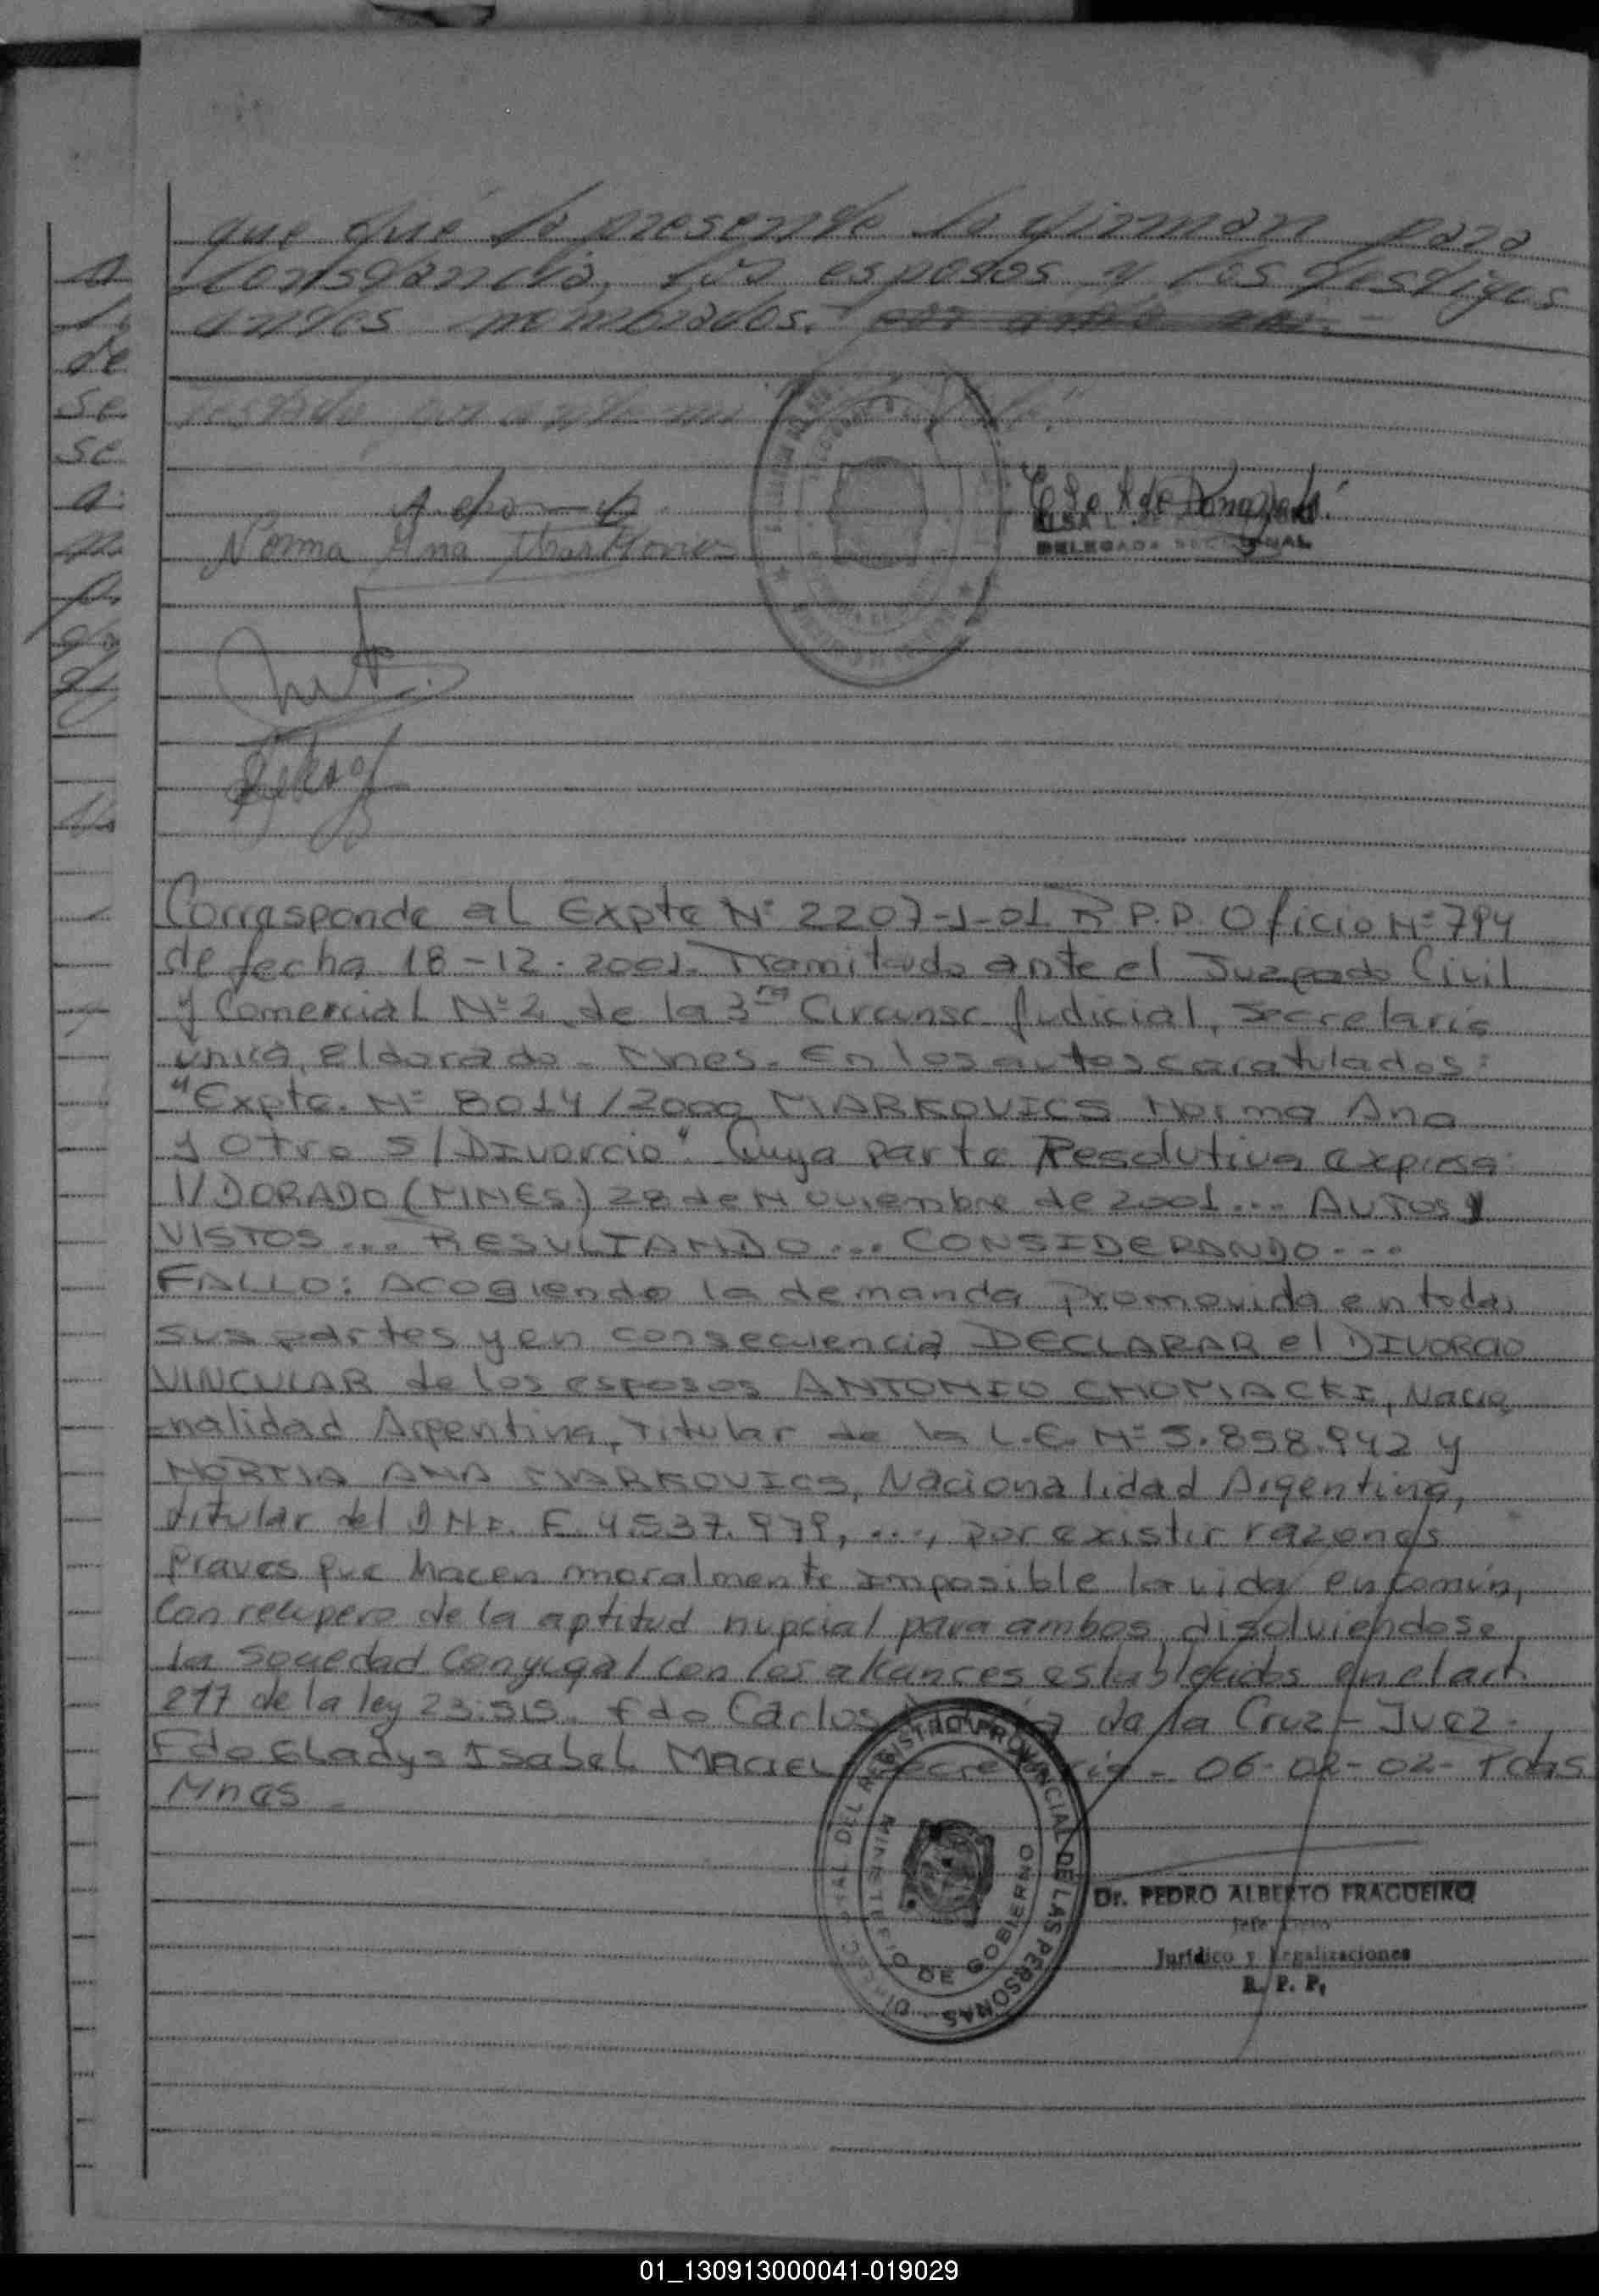 que fué la presente la firman para
constancia, los esposos y los testigos
antes nombrados. por ante mi.-
Testado por ante mi
Norma Ana Markovics
ELSA L. DE
DELEGADA SECCIONAL
Corresponde al Expte Nº 2207-J-01 R.P.P. Oficio Nº 794
de fecha 18-12-2001. Tramitado ante el Juzgado Civil
y Comercial Nº 2 de la 3ra Circunsc Judicial, Secretaria
única, Eldorado - Mnes. En los autos caratulados:
"Expte. Nº 8014/2000 MARKOVICS Norma Ana
y Otro S/Divorcio". Cuya parte Resolutiva expresa:
1/DORADO (MNES.) 28 de Noviembre de 2001... AUTOS Y
VISTOS ... RESULTANDO ... CONSIDERANDO ...
FALLO: Acogiendo la demanda promovida en todas
sus partes y en consecuencia DECLARAR el DIVORCIO
VINCULAR de los esposos ANTONIO CHOMACKI, Nacio
-nalidad Argentina, titular de la L.E. Nº 5.898.942 y
NORMA ANA MARKOVICS, Nacionalidad Argentina,
titular del DNI. F 4.537.979, ..., por existir razones
graves que hacen moralmente imposible la vida en común,
con recupero de la aptitud nupcial para ambos, disolviendose
la Sociedad Conyugal con los alcances establecidos en el art.
217 de la ley 23.515. Fdo Carlos de la Cruz - Juez.
Fdo Gladys Isabel Maciel Secretaria - 06-02-02- Pdas
Mnes -
DEL REGISTRO PROVINCIAL DE LAS PERSONAS
MINISTERIO DE GOBIERNO
Dr. PEDRO ALBERTO FRAGUEIRO
Jefe
Jurídico y Legalizaciones
R. P. P.
01_130913000041-019029